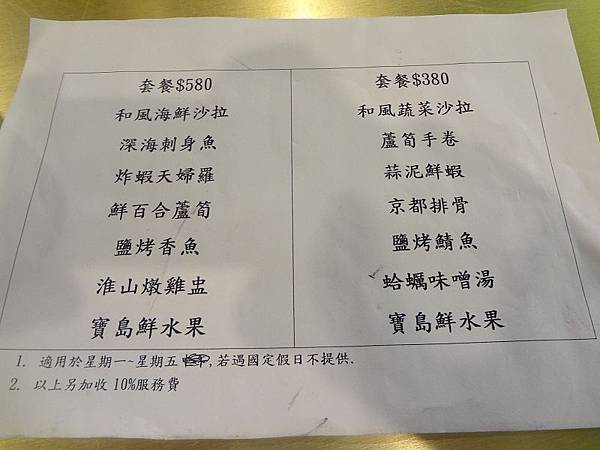 套餐$580
和風海鮮沙拉
深海刺身魚
炸蝦天婦羅
鮮百合蘆筍
鹽烤香魚
淮山燉雞盅
寶島鮮水果
套餐$380
和風蔬菜沙拉
蘆筍手卷
蒜泥鮮蝦
京都排骨
鹽烤鯖魚
蛤蠣味噌湯
寶島鮮水果
1. 適用於星期一~星期五,若遇國定假日不提供.
2. 以上另加收10%服務費